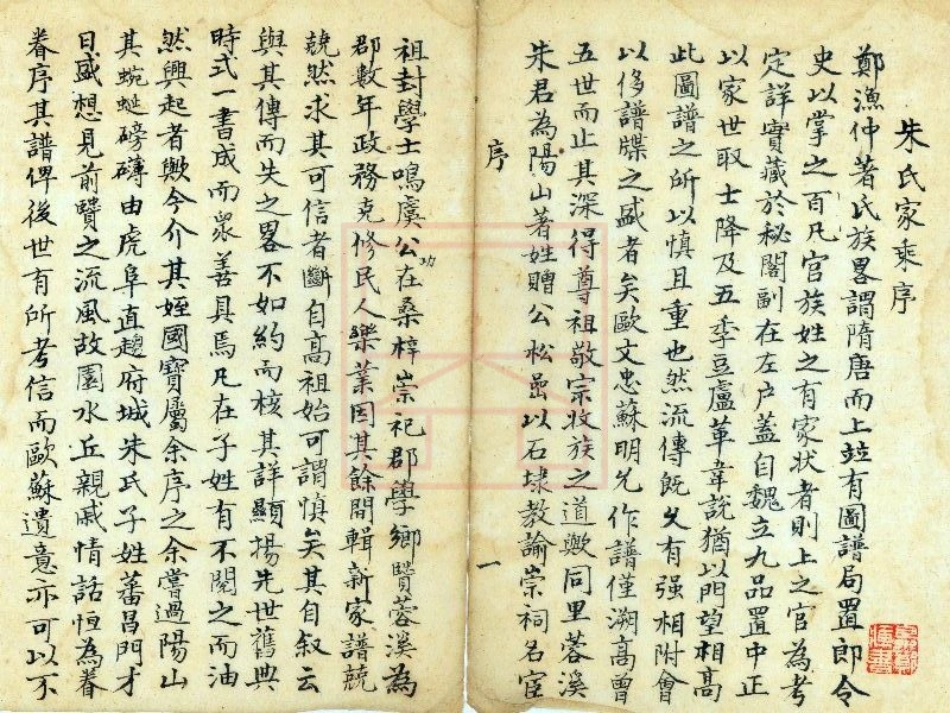 朱氏家乘序
鄭漁仲著氏族畧謂隋唐而上竝有圖譜局置郎令
史以掌之百凡官族姓之有家狀者則上之官為考
定詳實藏於秘閣副在左户蓋自魏立九品置中正
以家世取士降及五季豆盧革韋說猶以門望相高
此圖譜之所以慎且重也然流傳旣久有强相附會
以侈譜牒之盛者矣歐文忠蘇明允作譜僅溯高曾
五世而止其深得尊祖敬宗收族之道歟同里蓉溪
朱君為陽山著姓贈公松喦以石埭教諭崇祠名宦
序
一
祖封學士鳴虞公在桑梓崇祀郡學鄉賢蓉溪為
功
郡數年政務克修民人樂業因其餘閒輯新家譜競
兢然求其可信者斷自高祖始可謂慎矣其自叙云
與其傳而失之畧不如約而核其詳顯揚先世舊典
時式一書成而眾善具焉凡在子姓有不閱之而油
然興起者歟今介其姪國寶屬余序之余嘗過陽山
其蜿蜒磅礴由虎阜直趨府城朱氏子姓蕃昌門才
日盛想見前賢之流風故園水丘親戚情話恒為眷
眷序其譜俾後世有所考信而歐蘇遺意亦可以不